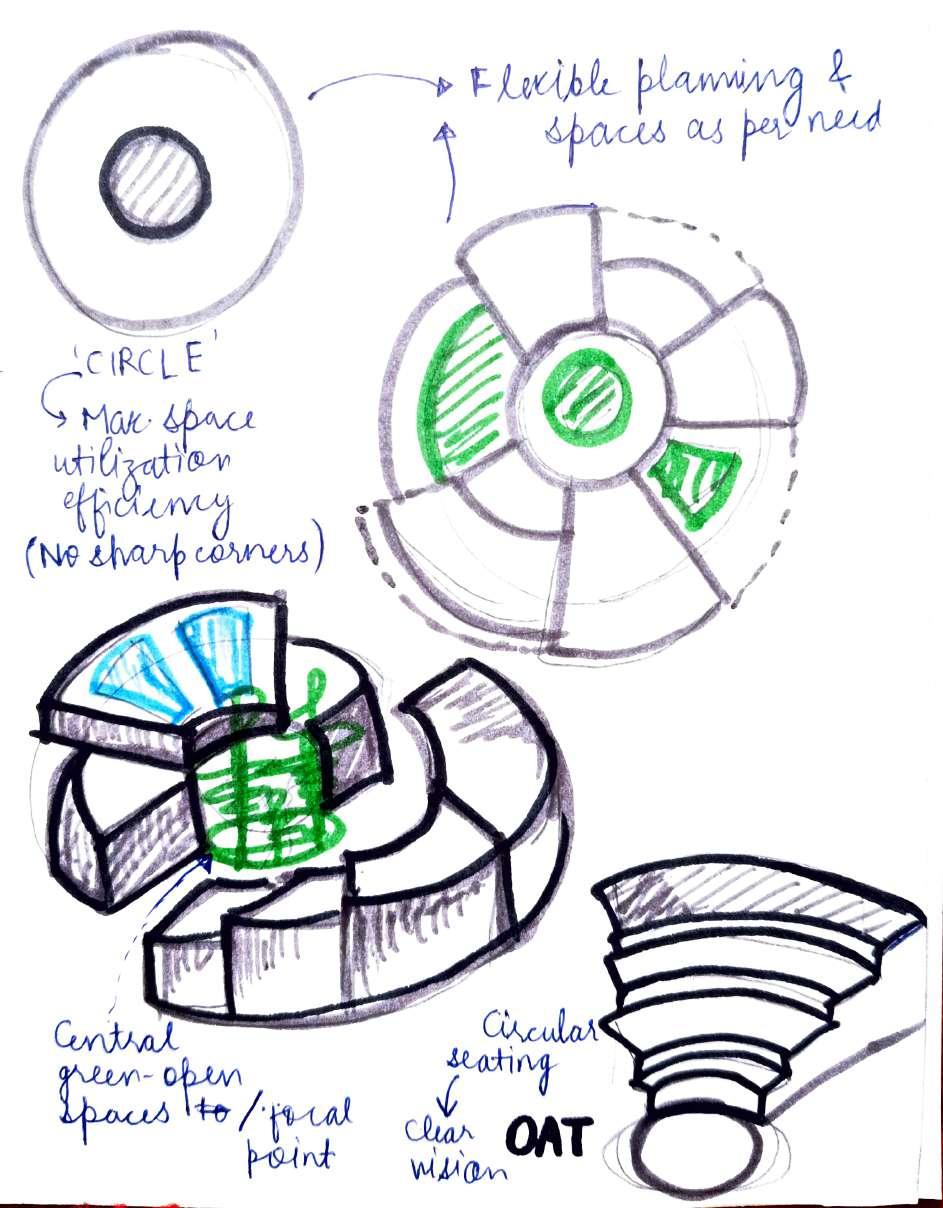 Flexible planning &
spaces as per need
'CIRCLE'
Max. space
utilization
efficiency
(No sharp corners)
Central
green-open
spaces to / focal
point
Circular
seating
clear
vision
OAT